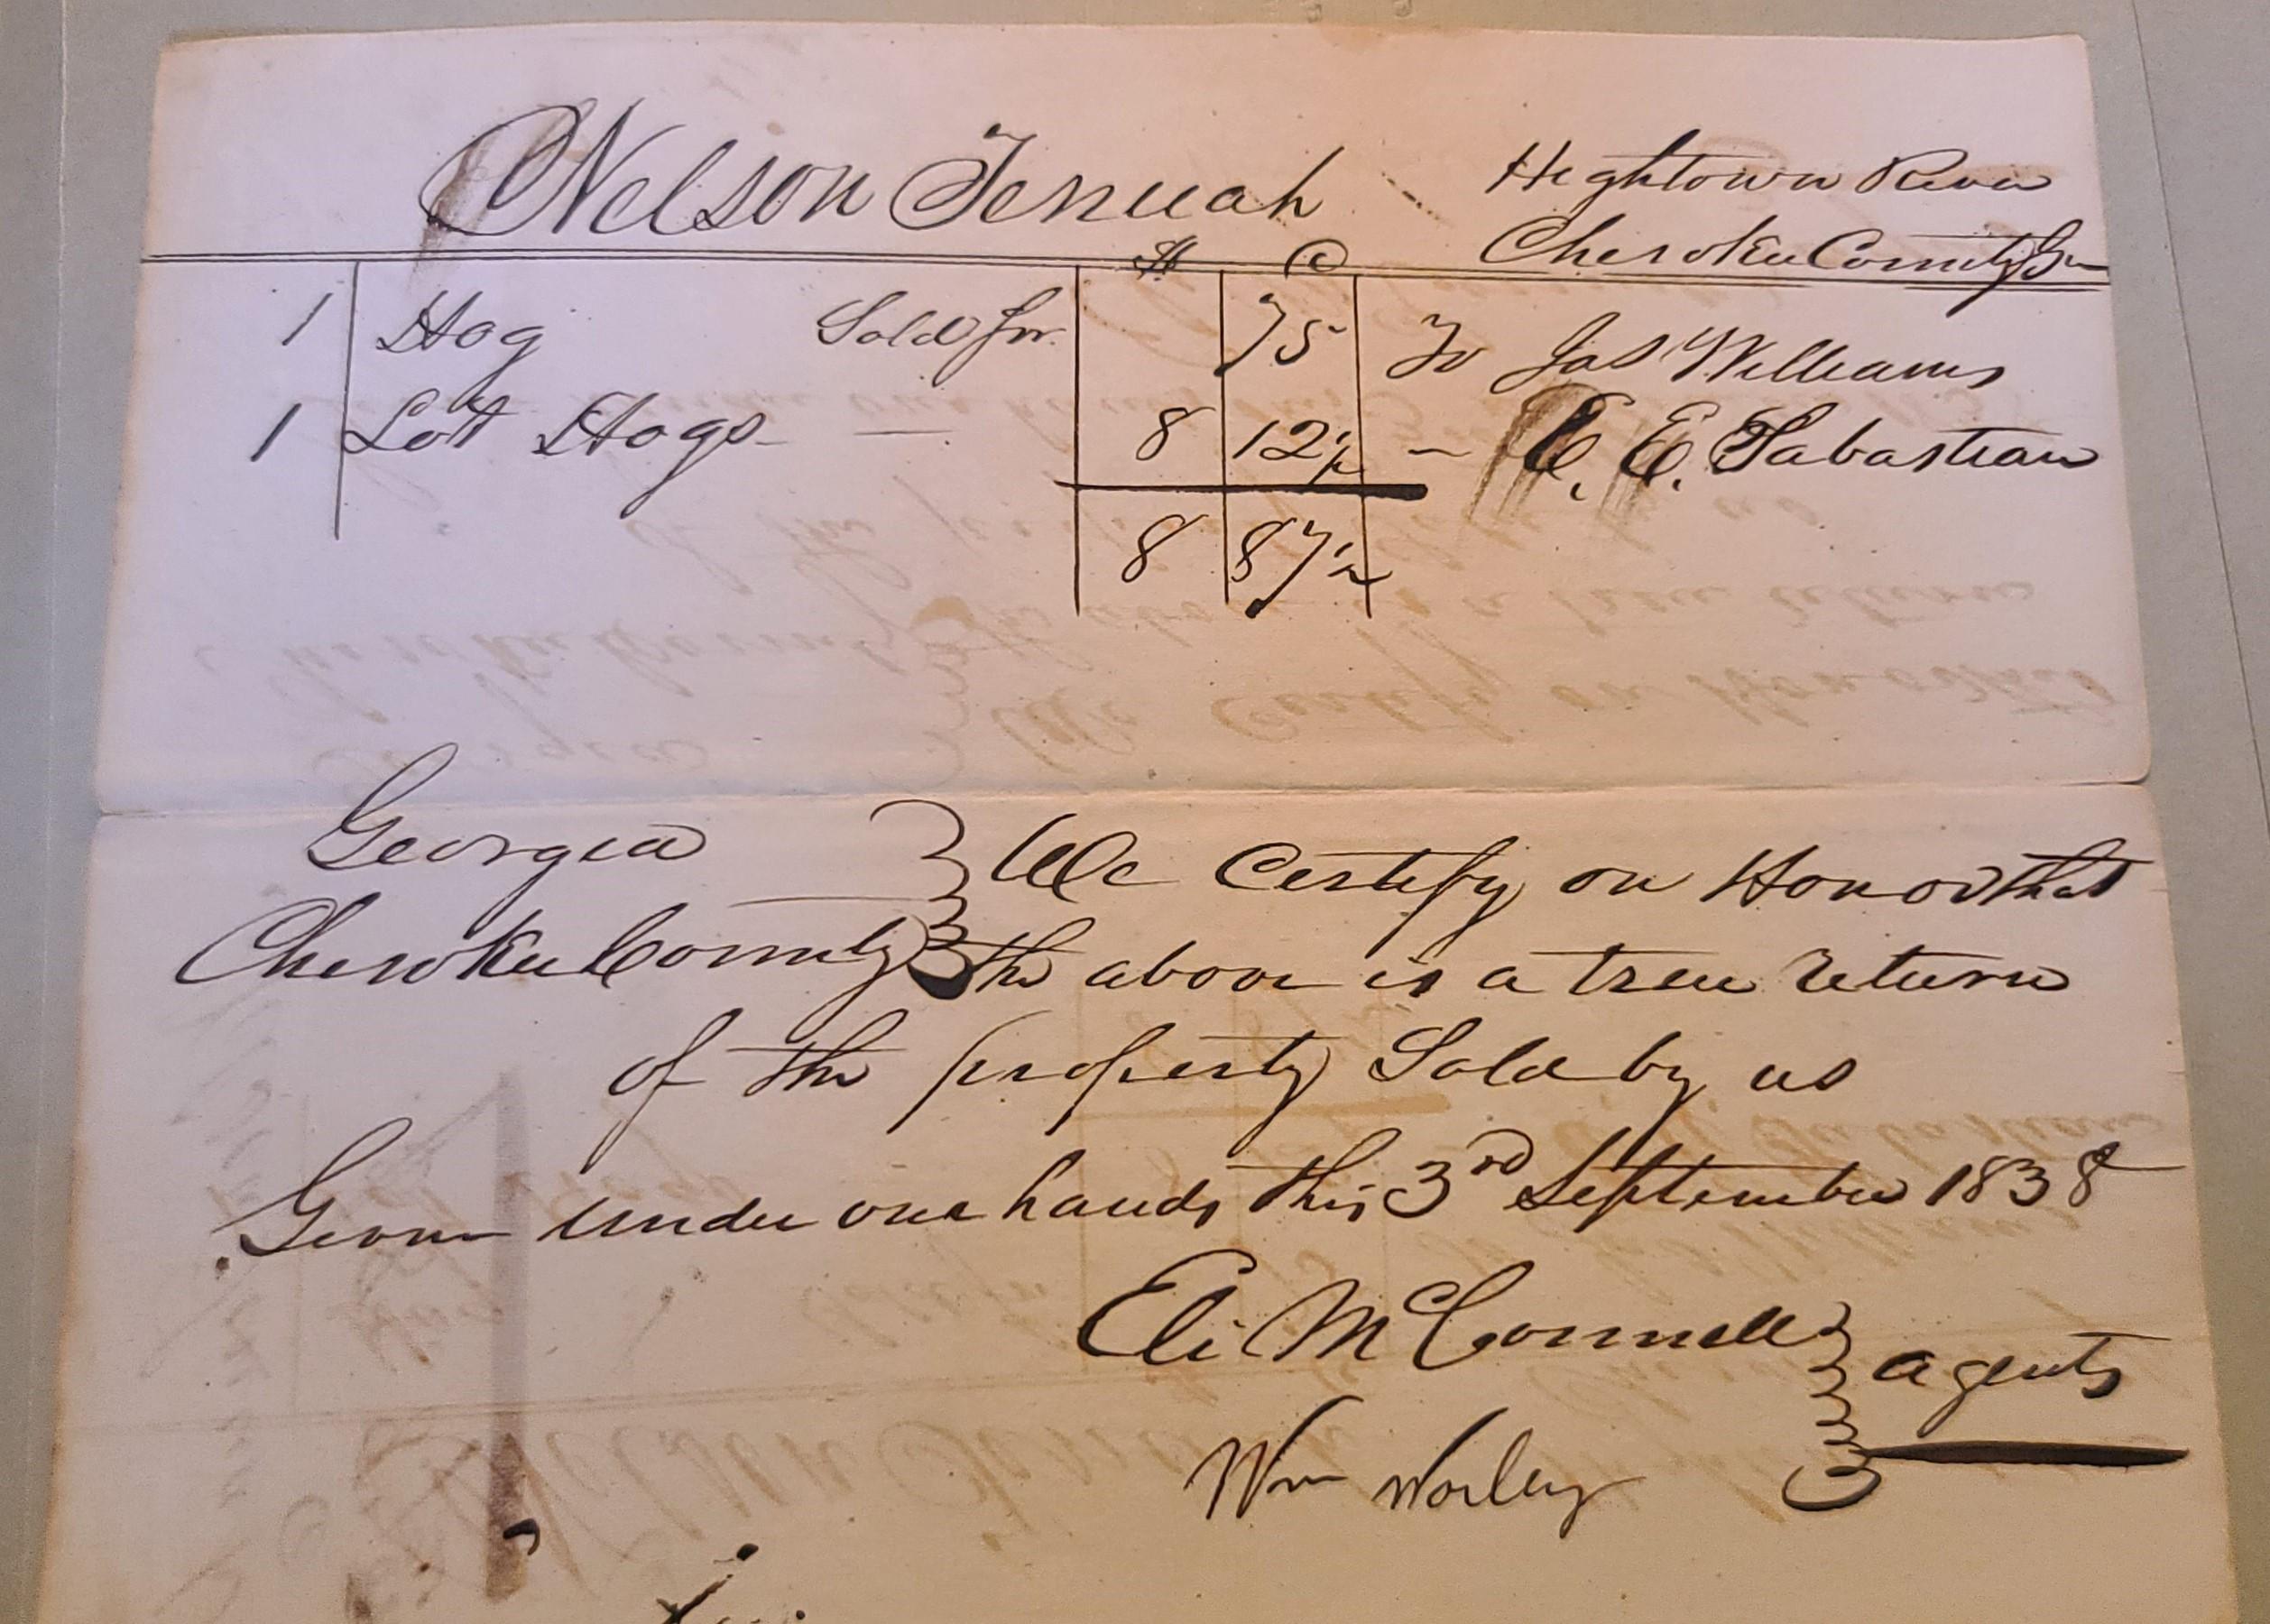 Nelson Tenuah Hightown River
Cherokee County Ga
$ C
1 Hog Sold for 75 To Jas Williams
1 Lot Hogs — 8 12½ — E. E. Sabastian
8 87½
Georgia We Certify on Honor that
Cherokee County the above is a treu return
of the property Sold by us
Given under our hands this 3rd September 1838
Eli McConnell agents
Wm Worley